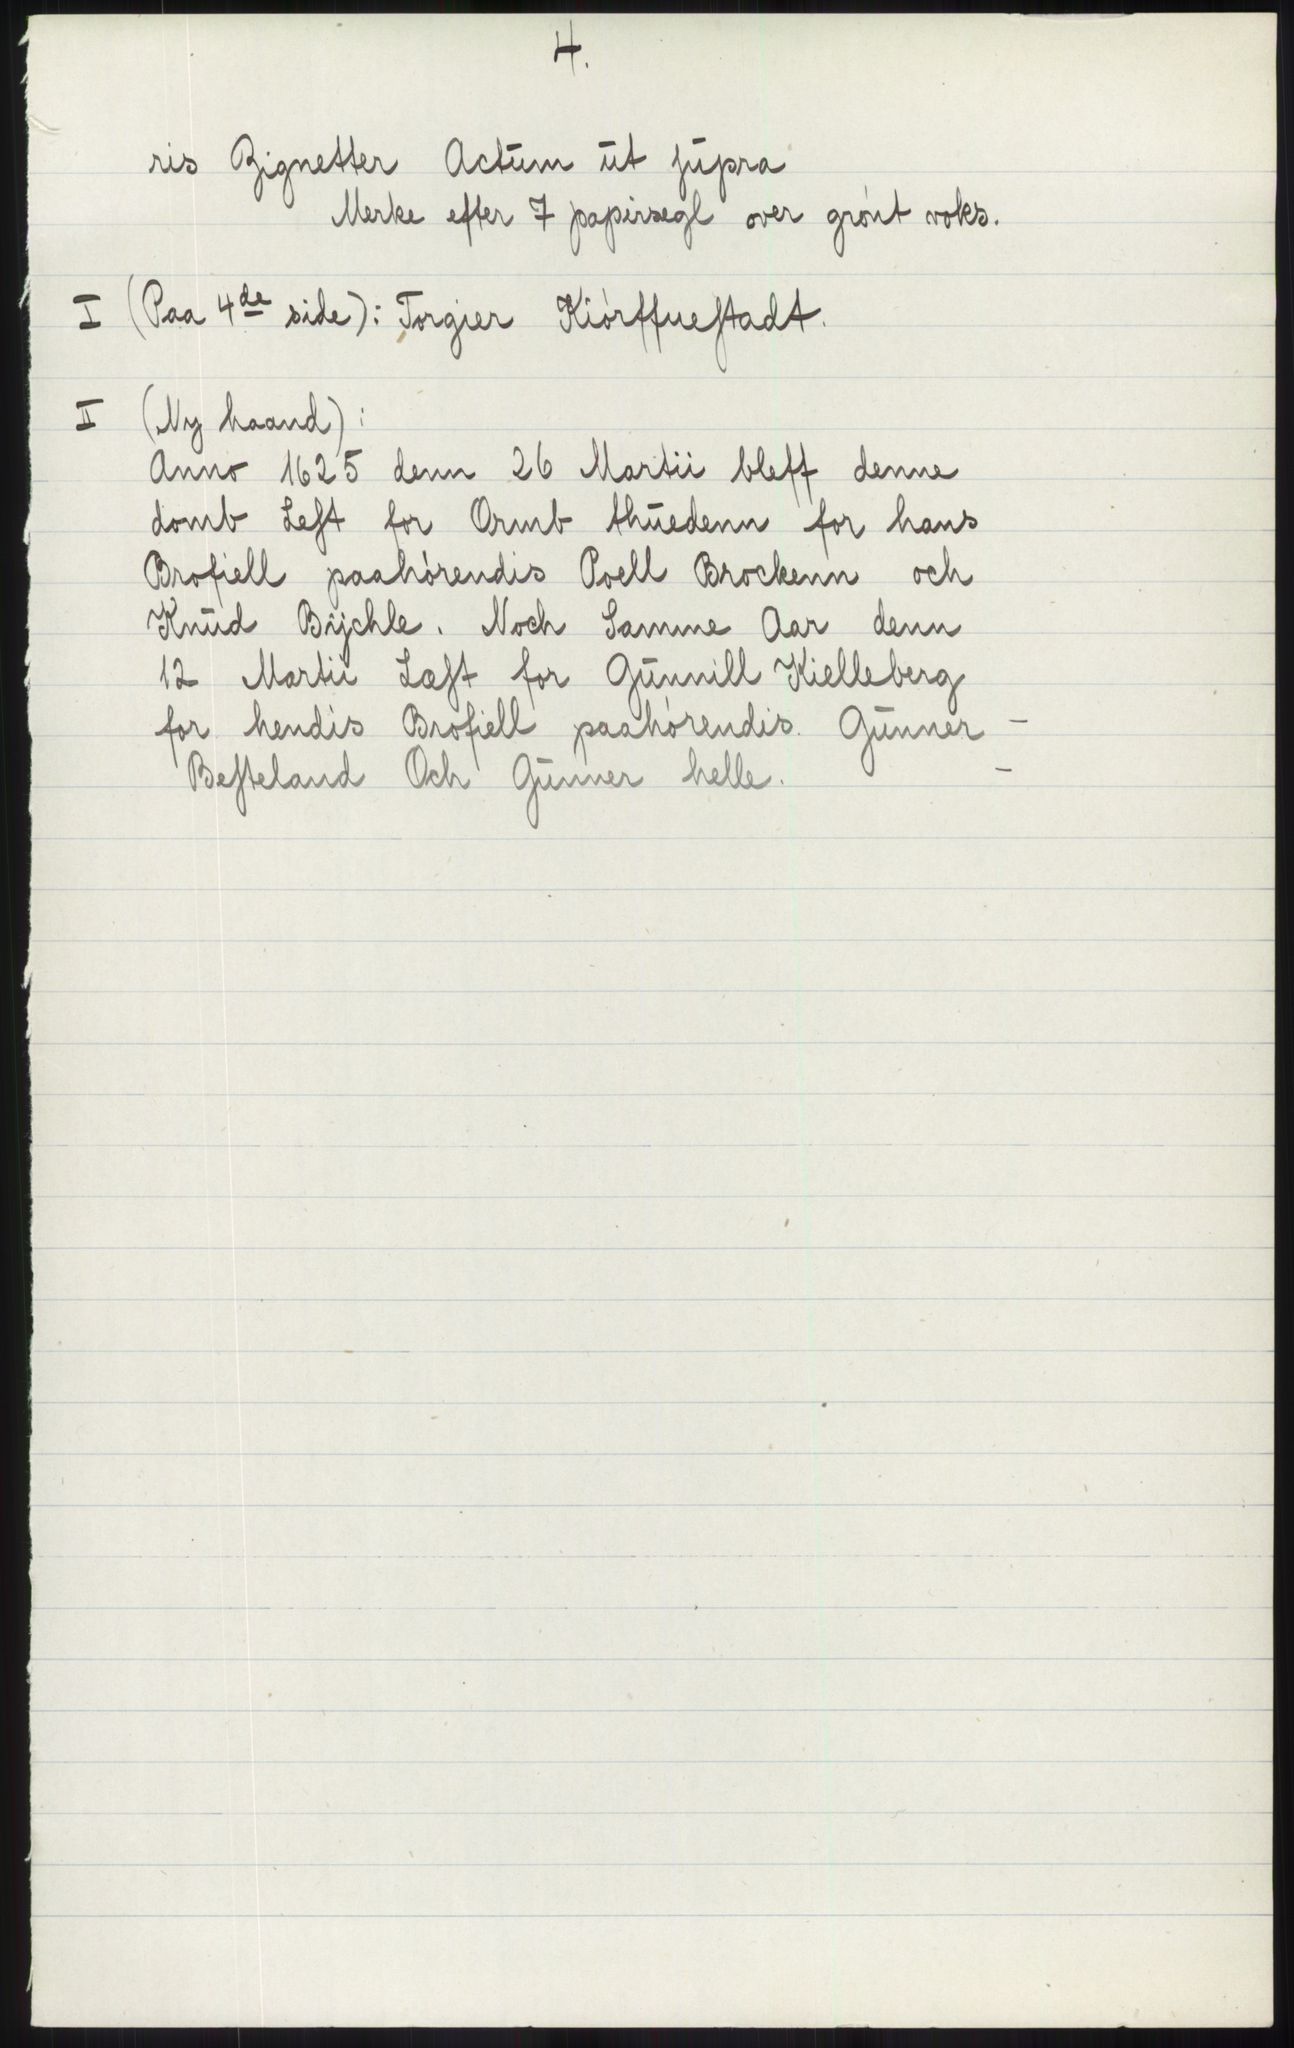 4.
ris Zignetter Actum ūt ſūpra
Merke efter 7 papirsegl over grónt voks.
I (Paa 4de side): Torgier Kiórffueſtadt.
II (Ny haand):
Anno 1625 denn 26 Martii bleff denne
domb Leſt for Ormb thūedenn for hans
Brofiell paahórendis Poell Brockenn och
Knūd Bijchle. Noch Samme Aar denn
12 Martii Læſt for Gūnnill Kielleberg
for hendis Brofiell paahórendis. Gūnner –
Beſteland Och Gūnner helle. –